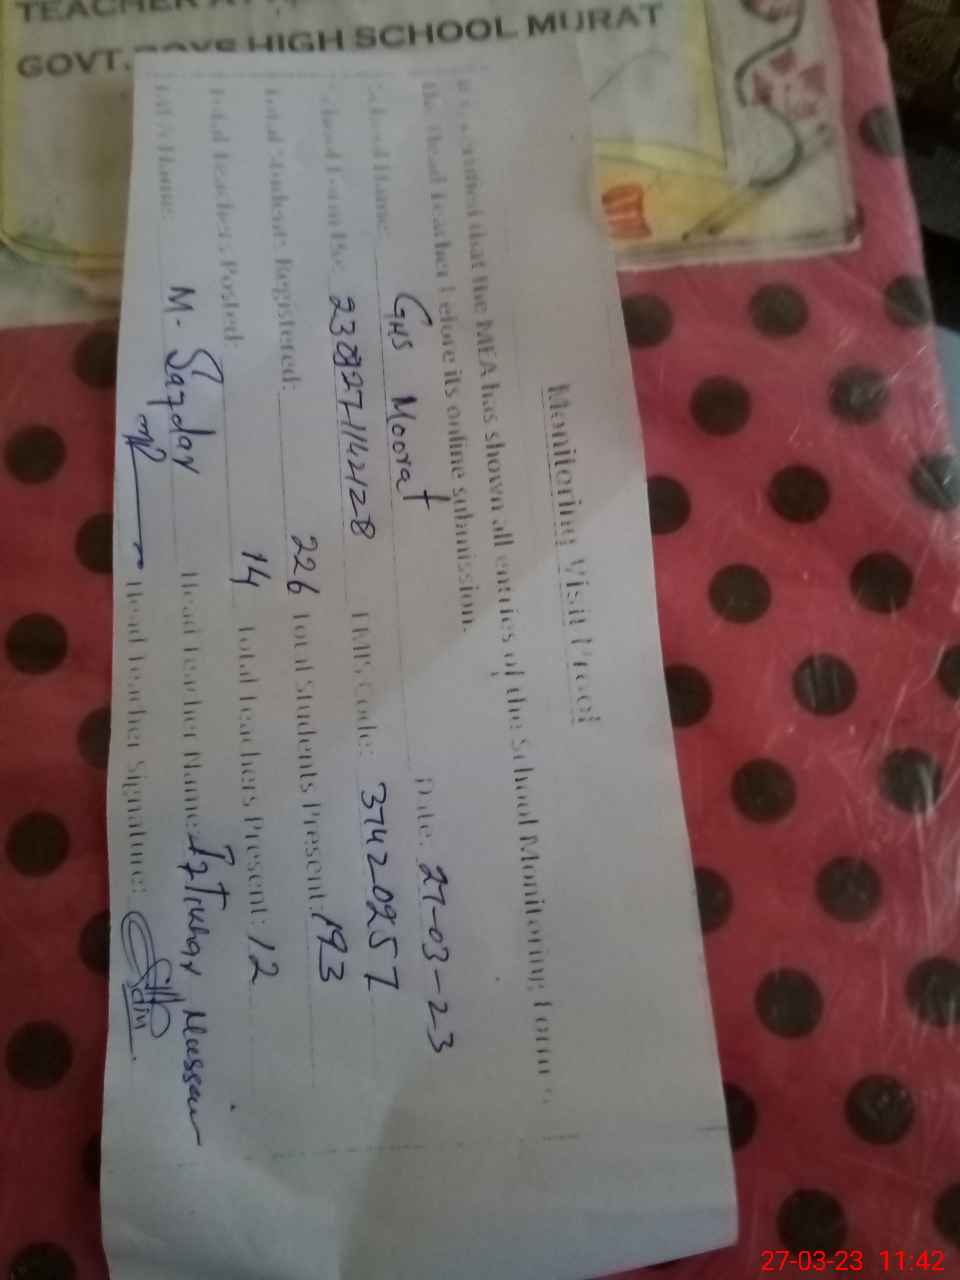 TEACHER
GOVT. BOYS HIGH SCHOOL MURAT
Monitoring Visit Proof
that the MEA has shown all entries of the School Monitoring Form to
the Head Teacher before its online submission.
School Name: GHS Moorat Date: 27-03-23
School Form No: EMIS Code: 37420957
Total Students Registered: 226 Total Students Present: 193
Total Teachers Posted: 14 Total Teachers Present: 12
MEA Name: M. Sazdar Head Teacher Name: Iftikhar Hussain
Head Teacher Signature:
27-03-23 11:42